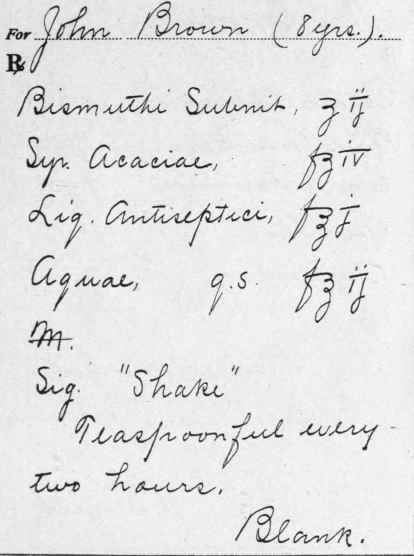 For John Brown (8 yrs.).
℞
Bismuthi Subnit, ʒ ij
Syr. Acaciae, fʒ iv
Liq. Antiseptici, f℥ j
Aquae, q.s. f℥ ij
M.
Sig. "Shake"
Teaspoonful every
two hours.
Blank.